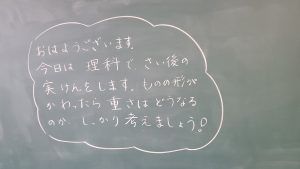 おはようございます。
今日は 理科で、さい後の
実けんをします。ものの形が
かわったら 重さは どうなる
のか、しっかり考えましょう。